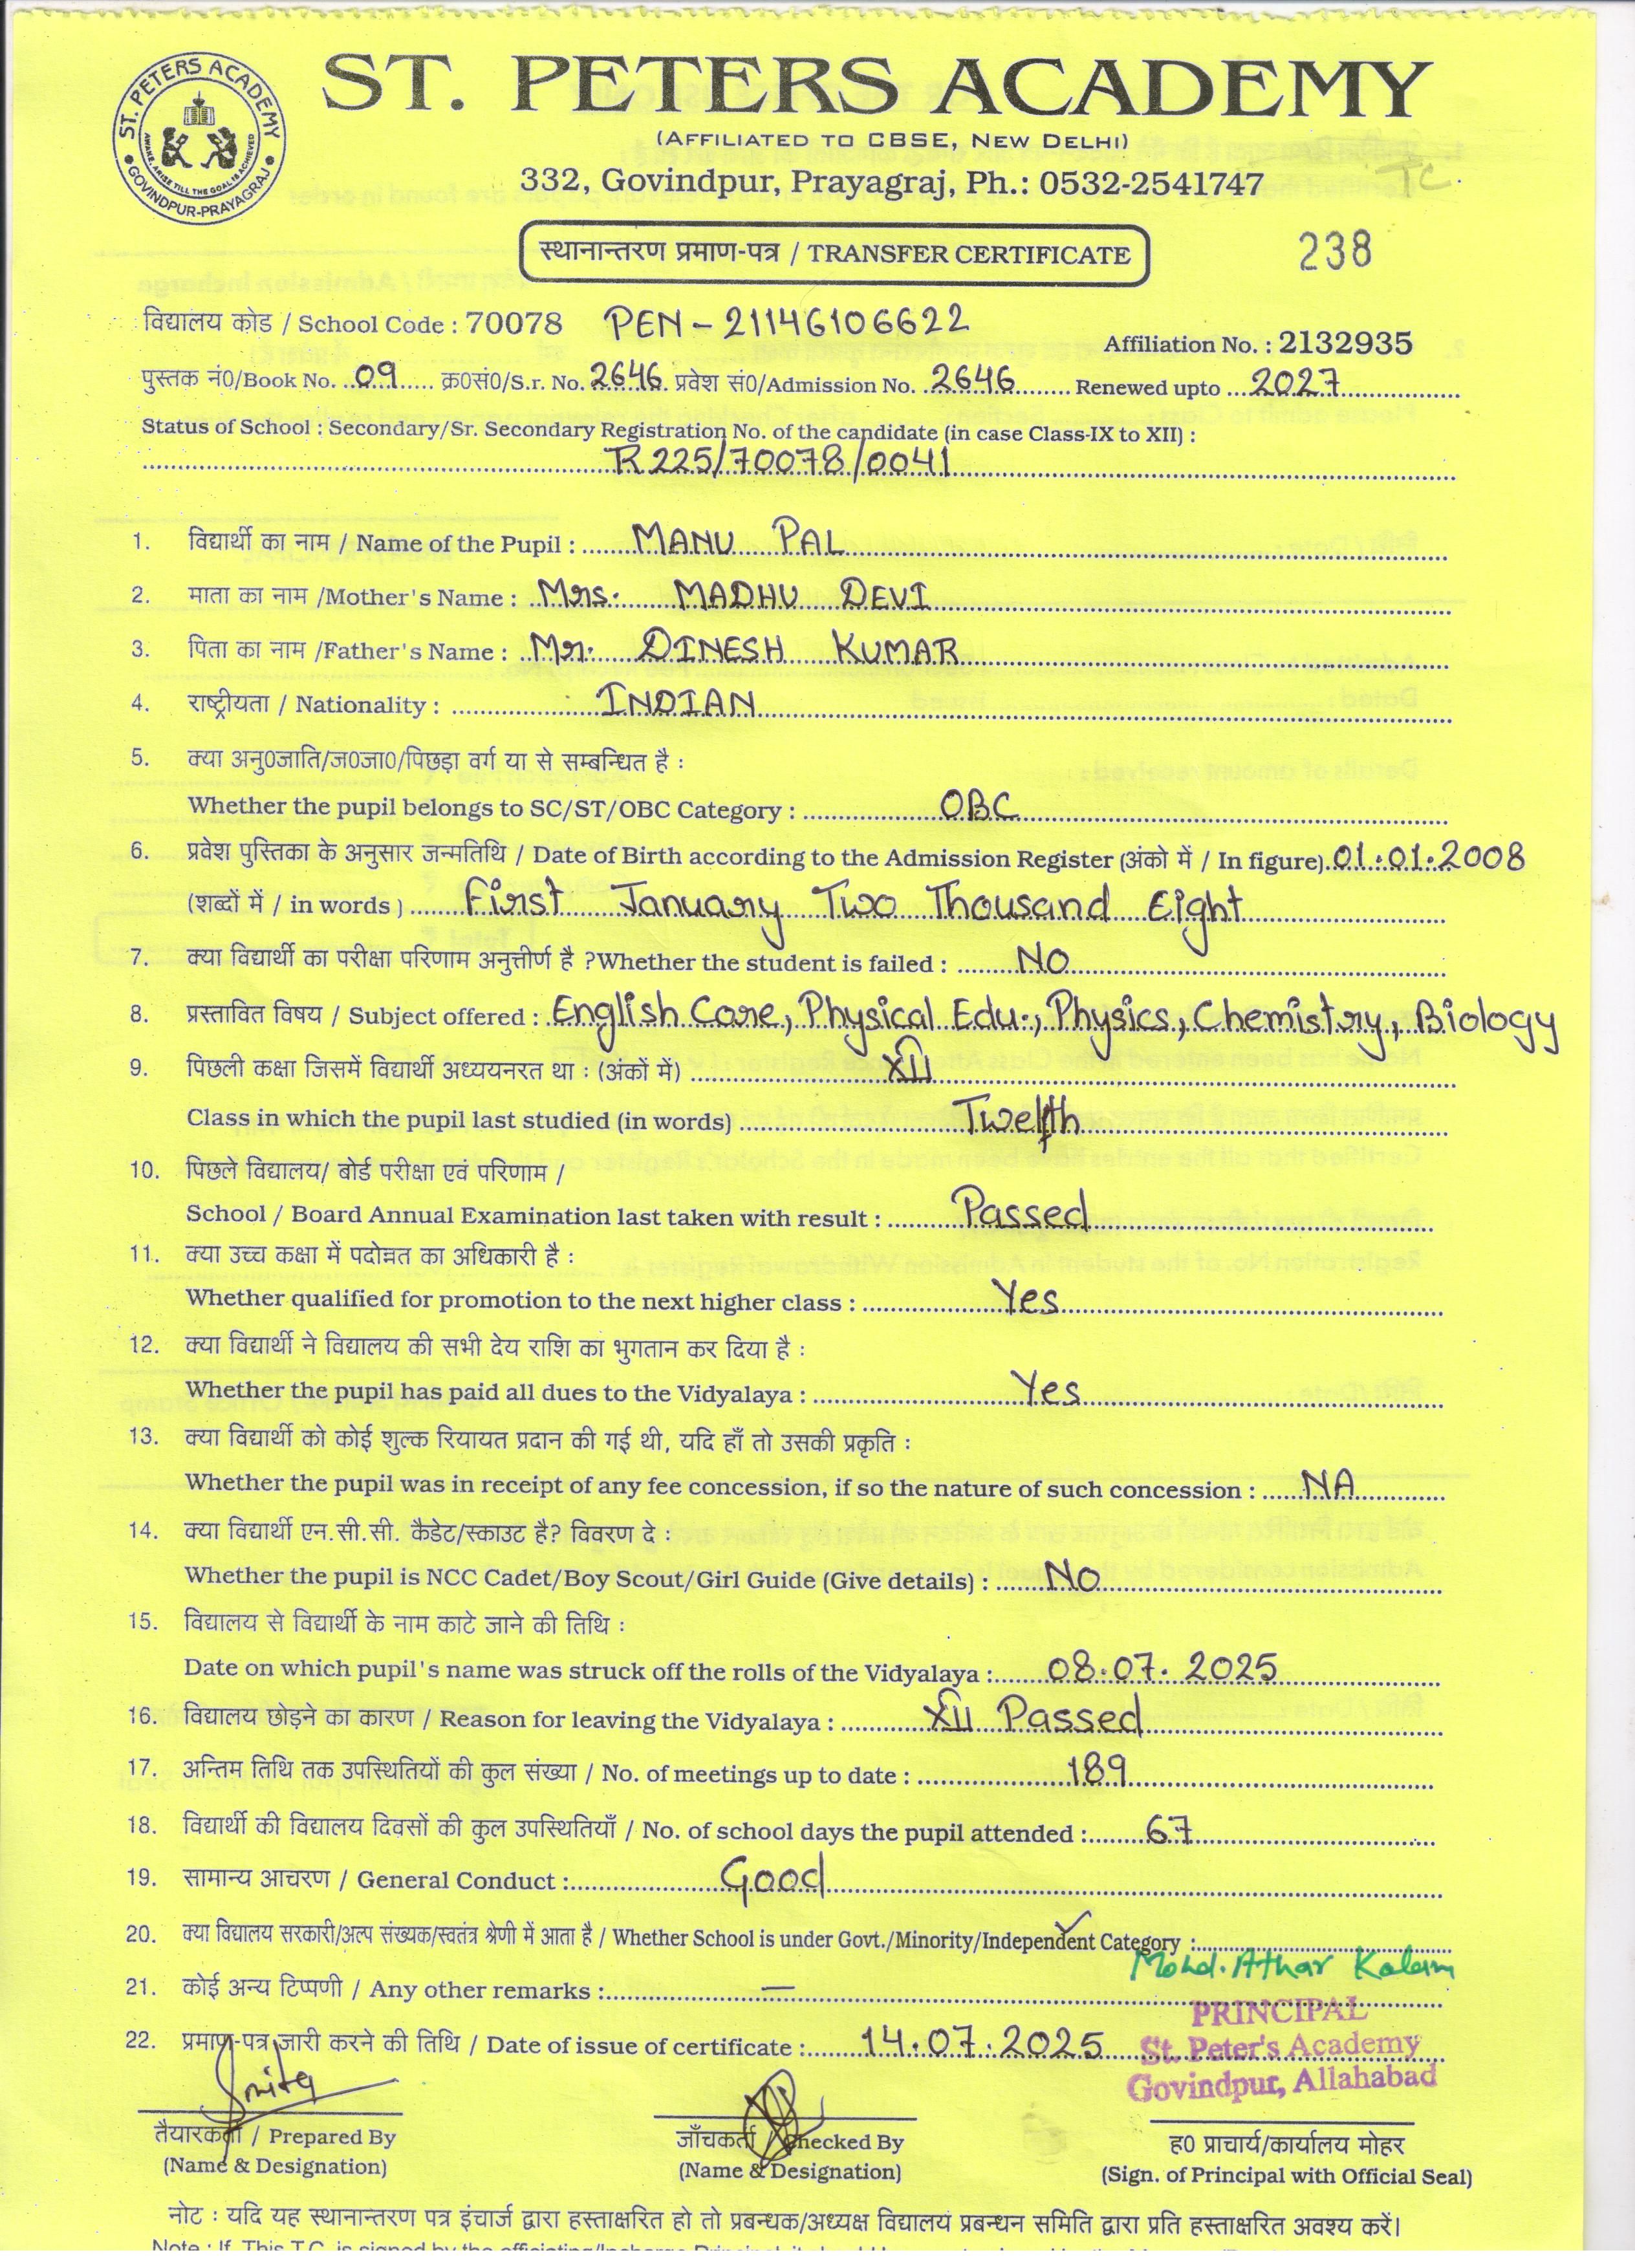 ST. PETERS ACADEMY
AWAKE, ARISE TILL THE GOAL IS ACHIEVED
GOVINDPUR-PRAYAGRAJ
ST. PETERS ACADEMY
(AFFILIATED TO CBSE, NEW DELHI)
332, Govindpur, Prayagraj, Ph.: 0532-2541747
TC
स्थानान्तरण प्रमाण-पत्र / TRANSFER CERTIFICATE
238
विद्यालय कोड / School Code : 70078 PEN - 21146106622
Affiliation No. : 2132935
पुस्तक नं0/Book No. 09 क्र0सं0/S.r. No. 2646 प्रवेश सं0/Admission No. 2646 Renewed upto 2027
Status of School : Secondary/Sr. Secondary Registration No. of the candidate (in case Class-IX to XII) :
R225/70078/0041
1. विद्यार्थी का नाम / Name of the Pupil : MANU PAL
2. माता का नाम /Mother's Name : Mrs. MADHU DEVI
3. पिता का नाम /Father's Name : Mr. DINESH KUMAR
4. राष्ट्रीयता / Nationality : INDIAN
5. क्या अनु0जाति/ज0जा0/पिछड़ा वर्ग या से सम्बन्धित है :
Whether the pupil belongs to SC/ST/OBC Category : OBC
6. प्रवेश पुस्तिका के अनुसार जन्मतिथि / Date of Birth according to the Admission Register (अंको में / In figure) 01.01.2008
(शब्दों में / in words ) First January Two Thousand Eight
7. क्या विद्यार्थी का परीक्षा परिणाम अनुत्तीर्ण है ?Whether the student is failed : NO
8. प्रस्तावित विषय / Subject offered : English Core, Physical Edu., Physics, Chemistry, Biology
9. पिछली कक्षा जिसमें विद्यार्थी अध्ययनरत था : (अंकों में) XII
Class in which the pupil last studied (in words) Twelfth
10. पिछले विद्यालय/ बोर्ड परीक्षा एवं परिणाम /
School / Board Annual Examination last taken with result : Passed
11. क्या उच्च कक्षा में पदोन्नत का अधिकारी है :
Whether qualified for promotion to the next higher class : Yes
12. क्या विद्यार्थी ने विद्यालय की सभी देय राशि का भुगतान कर दिया है :
Whether the pupil has paid all dues to the Vidyalaya : Yes
13. क्या विद्यार्थी को कोई शुल्क रियायत प्रदान की गई थी, यदि हाँ तो उसकी प्रकृति :
Whether the pupil was in receipt of any fee concession, if so the nature of such concession : NA
14. क्या विद्यार्थी एन.सी.सी. कैडेट/स्काउट है? विवरण दे :
Whether the pupil is NCC Cadet/Boy Scout/Girl Guide (Give details) : No
15. विद्यालय से विद्यार्थी के नाम काटे जाने की तिथि :
Date on which pupil's name was struck off the rolls of the Vidyalaya : 08.07.2025
16. विद्यालय छोड़ने का कारण / Reason for leaving the Vidyalaya : XII Passed
17. अन्तिम तिथि तक उपस्थितियों की कुल संख्या / No. of meetings up to date : 189
18. विद्यार्थी की विद्यालय दिवसों की कुल उपस्थितियाँ / No. of school days the pupil attended : 67
19. सामान्य आचरण / General Conduct : Good
20. क्या विद्यालय सरकारी/अल्प संख्यक/स्वतंत्र श्रेणी में आता है / Whether School is under Govt./Minority/Independent Category :
Mohd. Athar Kalam
21. कोई अन्य टिप्पणी / Any other remarks : —
PRINCIPAL
22. प्रमाण-पत्र जारी करने की तिथि / Date of issue of certificate : 14.07.2025
St. Peter's Academy
Govindpur, Allahabad
तैयारकर्ता / Prepared By
(Name & Designation)
जाँचकर्ता / Checked By
(Name & Designation)
ह0 प्राचार्य/कार्यालय मोहर
(Sign. of Principal with Official Seal)
नोट : यदि यह स्थानान्तरण पत्र इंचार्ज द्वारा हस्ताक्षरित हो तो प्रबन्धक/अध्यक्ष विद्यालय प्रबन्धन समिति द्वारा प्रति हस्ताक्षरित अवश्य करें।